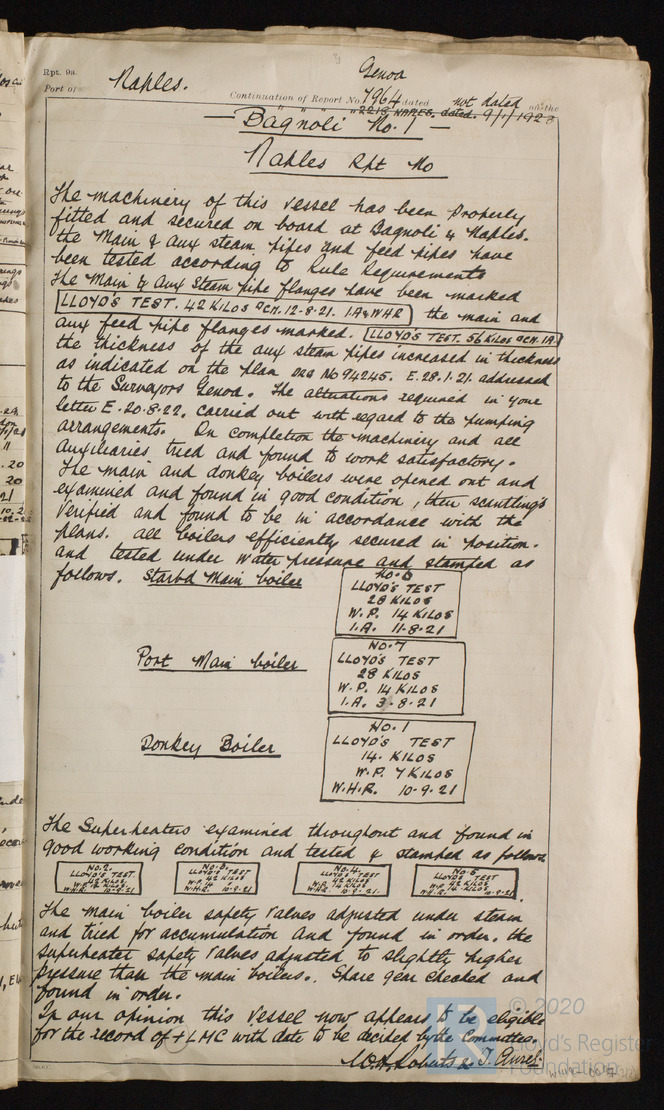 Rpt. 9a.
Port of Naples.
Genoa
Continuation of Report No. 7964 dated not dated on the
" " " " 2218 NAPLES, dated. 9/1/1923
— Bagnoli No. 1 —
Naples Rpt No
The machinery of this vessel has been properly
fitted and secured on board at Bagnoli & Naples.
the Main & Aux steam pipes and feed pipes have
been tested according to Rule Requirements
The Main & Aux Steam pipe flanges have been marked
LLOYD'S TEST. 42 KILOS 12-8-21. I.A & WHR the main and
aux feed pipe flanges marked. LLOYD'S TEST. 56 KILOS I.A.
the thickness of the aux steam pipes increased in thickness
as indicated on the plan No 94245. E.28.1.21. addressed
to the Surveyors Genoa. The alterations required in your
letter E.20.8.22. carried out with regard to the pumping
arrangements. On completion the machinery and all
Auxiliaries tried and found to work satisfactory.
The main and donkey boilers were opened out and
examined and found in good condition, their scantlings
verified and found to be in accordance with the
plans. all boilers efficiently secured in position.
and tested under water pressure and stamped as
follows. Starbd Main boiler
No. 6
LLOYD'S TEST
28 KILOS
W.P. 14 KILOS
I.A. 11-8-21
Port Main boiler
NO. 7
LLOYD'S TEST
28 KILOS
W.P. 14 KILOS
I.A. 3-8-21
Donkey Boiler
NO. 1
LLOYD'S TEST
14. KILOS
W.P. 7 KILOS
W.H.R. 10-9-21
The Superheaters examined throughout and found in
good working condition and tested & stamped as follows
NO. 2.
LLOYD'S TEST.
42 KILOS.
W.P. 14 KILOS
W.H.R. 10-9-21
LLOYD'S TEST
42 KILOS
W.P. 14
W.H.R. 10-9-21
NO. 4.
LLOYD'S TEST
42 KILOS
W.P. 14 KILOS
W.H.R. 10-9-21.
LLOYD'S TEST
42 KILOS
W.P. 14 KILOS
W.H.R. 10-9-21
The main boiler safety valves adjusted under steam
and tried for accumulation and found in order. the
superheater safety valves adjusted to slightly higher
pressure than the main boilers. Spare gear checked and
found in order.
In our opinion this vessel now appears to be eligible
for the record of + LMC with date to be decided by the Committee.
W.H. Roberts & I.
© 2020
Lloyd's Register
Foundation